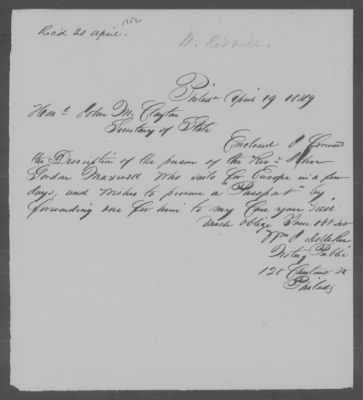 Rec'd 20 April
1862
Philada April 19 1849
Honl. John M. Clayton
Secretary of State
Enclosed I forward
the Description of the person of the Revd.
Gordon Maxwell Who sails for Europe in a few
days, and wishes to procure a "Passport" by
forwarding one for him to my Care you will
much oblige Your Obt Svt
Wm
Notary Public
128 Chestnut St
Philada